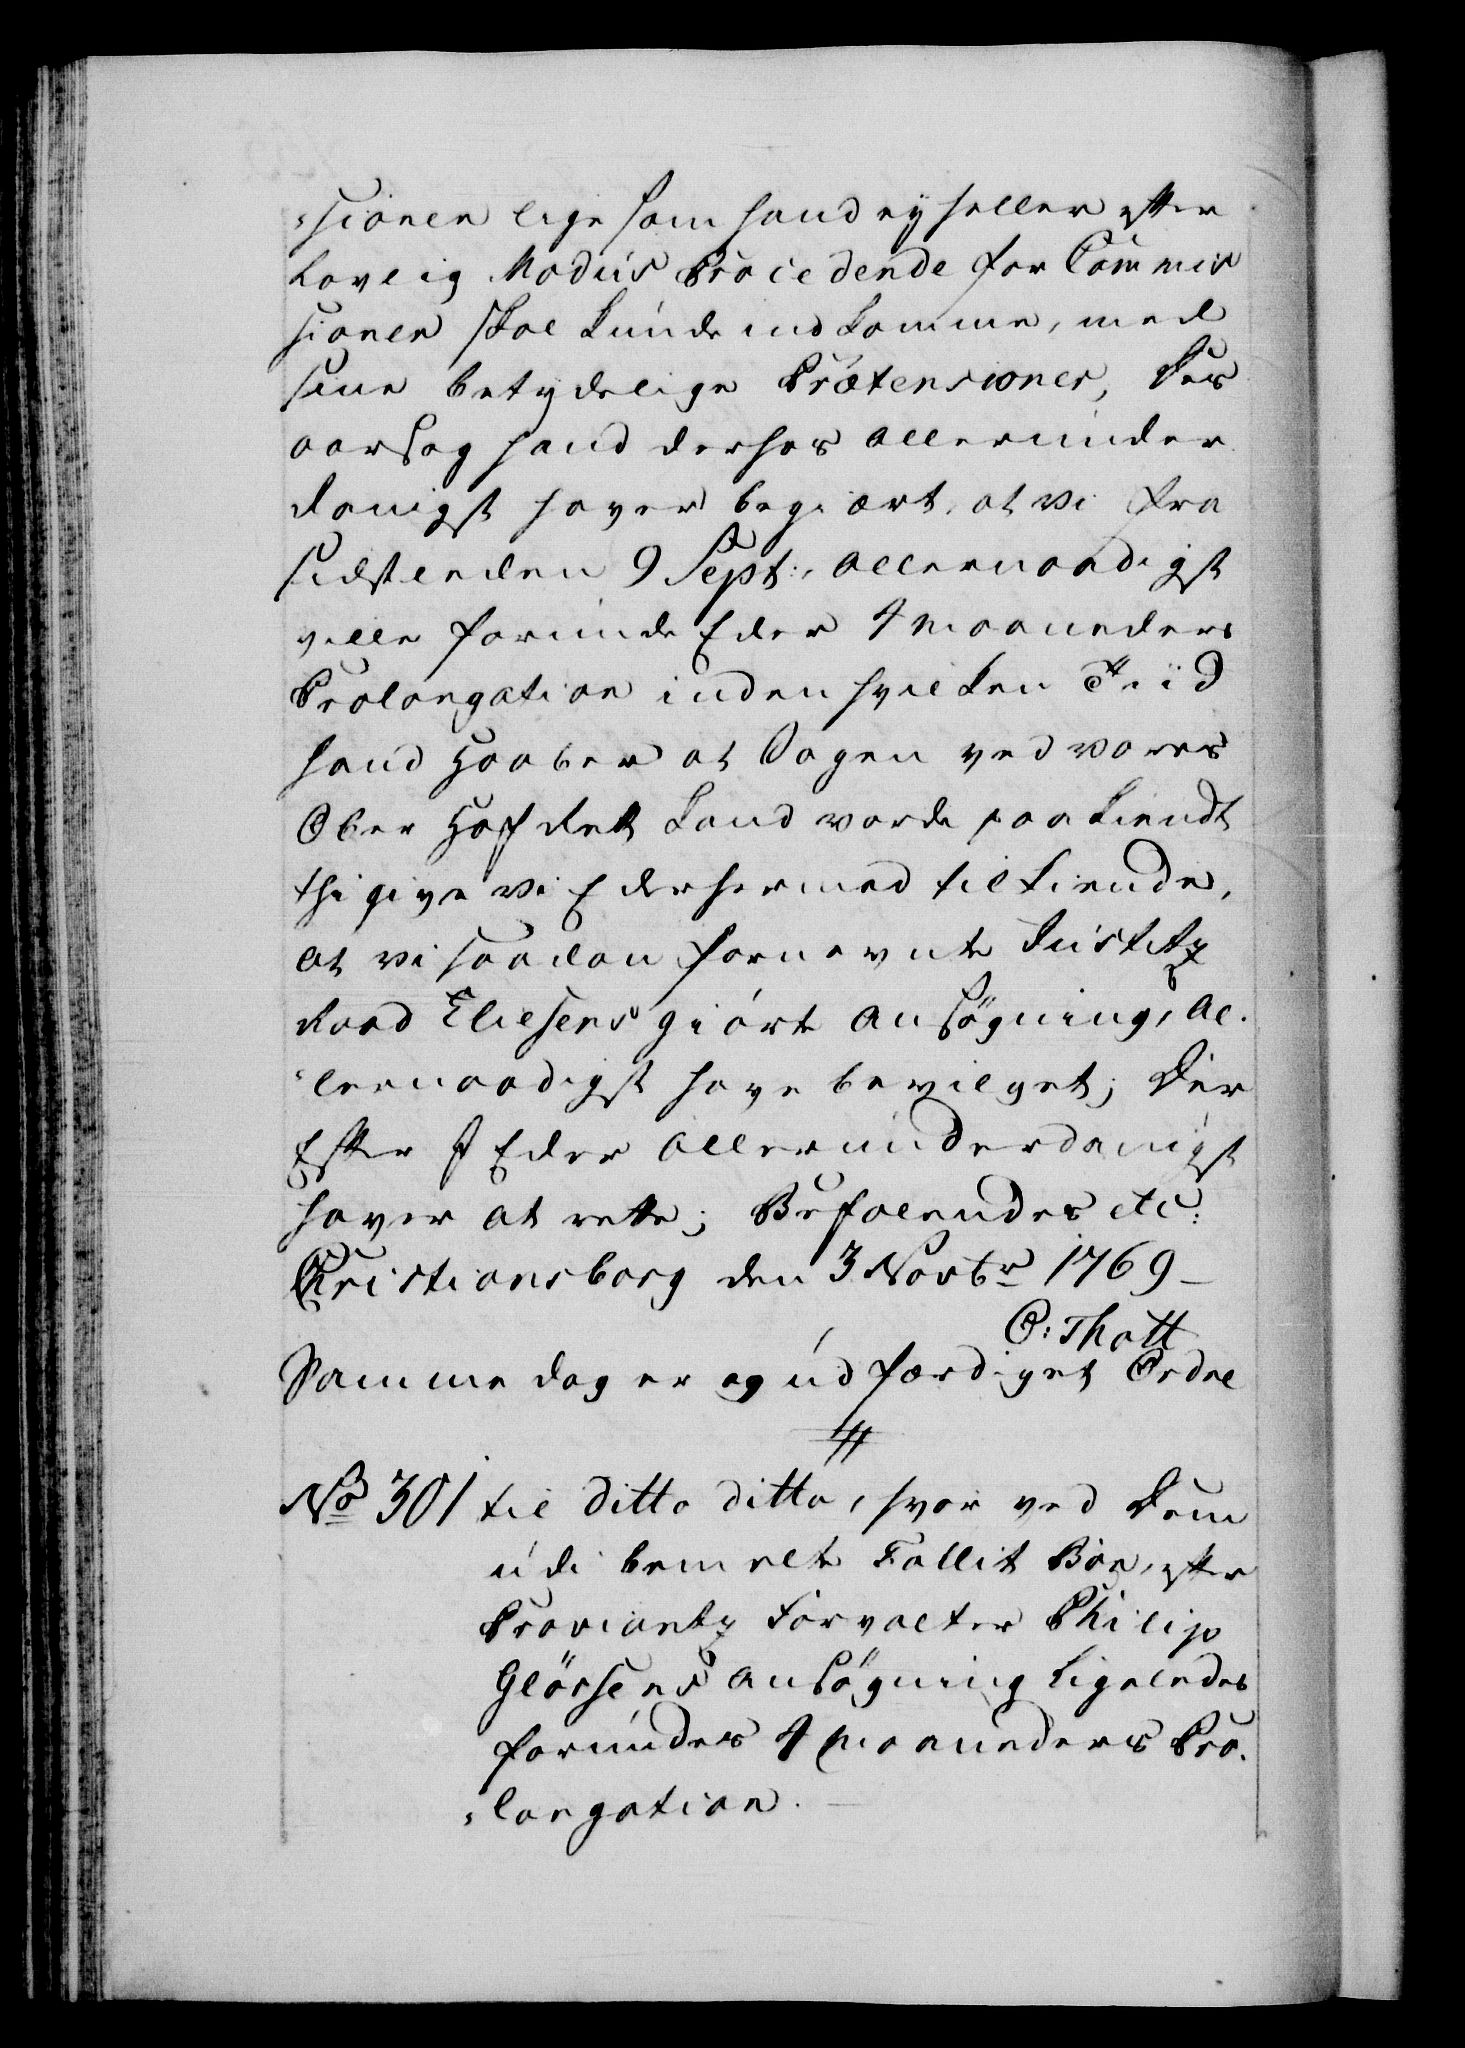 -sionen lige som hand ey heller efter
Lovlig Modus Procedende for Commis
sionen skal kunde indkomme, med
sine betydelige Prætensioner, Des
aarsag hand derhos allerunder
danigst haver begiært, at vi fra
sidstleden 9 Sept:, allernaadigst
ville forunde Eder 4 Maaneders
Prolongation inden hvilken Tiid
hand Haaber at Sagen ved vores
Ober Hof Ret kand vorde paakiendt
thi give vi Eder hermed tilkiende,
at vi saadan fornevnte Justitz
Raad Eliesens giörte Ansögning, Al-
-lernaadigst have bevilget; Der
Efter I Eder allerunderdanigst
haver at rette; Befalendes etc:
Christiansborg den 3 Novbr 1769 -
O: Thott
Samme dag er og udfærdiget Ordre
No 301 til ditto ditto, hvor ved Dem
udi bemelte Fallit Boe, efter
Proviantz Forvalter Philip
Glörsens Ansögning ligeledes
forundes 4 Maaneders Pro-
-longation. -